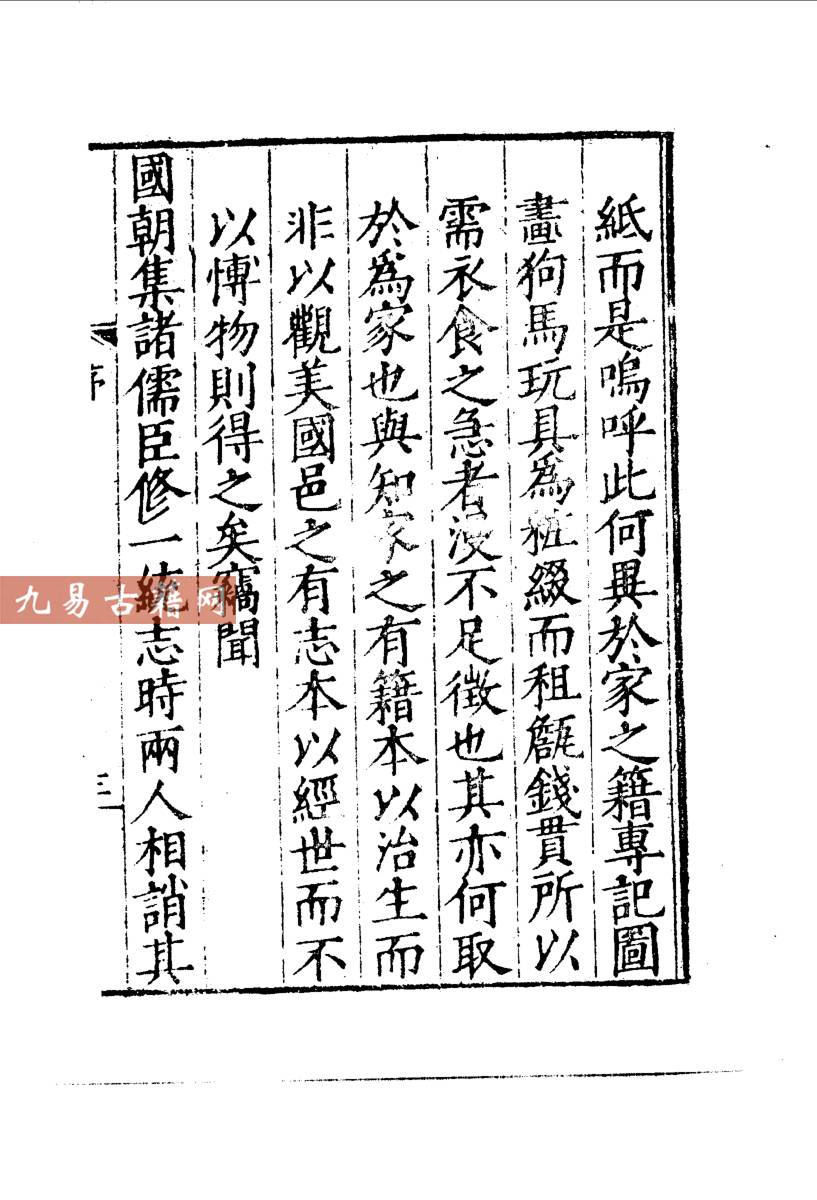 紙而是嗚呼此何異於家之籍專記圖
畫狗馬玩具為粧綴而租甔錢貫所以
需衣食之急者漫不足徵也其亦何取
於爲家也與知家之有籍本以治生而
非以觀美國邑之有志本以經世而不
以愽物則得之矣竊聞
國朝集諸儒臣修一統志時兩人相誚其
序
三
九易古籍网